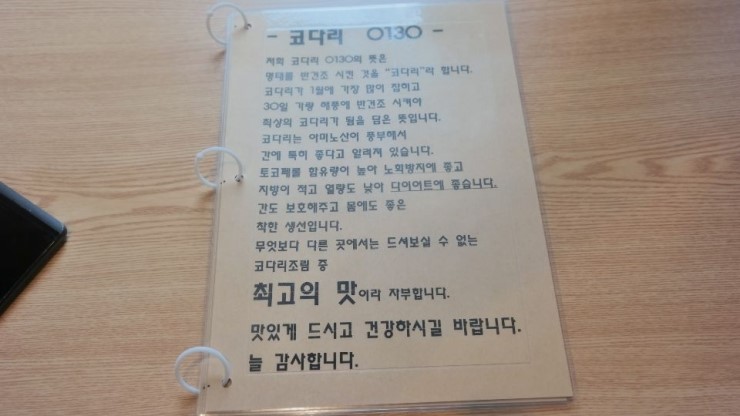 - 코다리 0130 -
저희 코다리 0130의 뜻은
명태를 반건조 시킨 것을 "코다리"라 합니다.
코다리가 1월에 가장 많이 잡히고
30일 가량 해풍에 반건조 시켜야
최상의 코다리가 됨을 담은 뜻입니다.
코다리는 아미노산이 풍부해서
간에 특히 좋다고 알려져 있습니다.
토코페롤 함유량이 높아 노화방지에 좋고
지방이 적고 열량도 낮아 다이어트에 좋습니다.
간도 보호해주고 몸에도 좋은
착한 생선입니다.
무엇보다 다른 곳에서는 드셔보실 수 없는
코다리조림 중
최고의 맛이라 자부합니다.
맛있게 드시고 건강하시길 바랍니다.
늘 감사합니다.